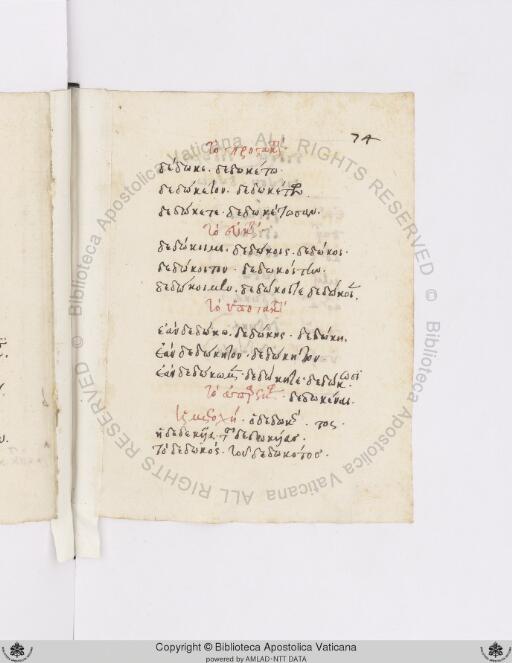 74
τὸ προστακτ
δέδωκε. δεδωκέτω
δεδώκετον. δεδωκέτων.
δεδώκετε. δεδωκέτωσαν.
τὸ εὐκτ
δεδώκοιμι. δεδώκοις. δεδώκοι.
δεδώκοιτον. δεδωκοίτην.
δεδώκοιμεν. δεδώκοιτε δεδώκοιεν.
τὸ ὑποτακτ
ἐὰν δεδώκω. δεδώκης. δεδώκη.
ἐὰν δεδώκητον. δεδώκητον
ἐὰν δεδώκωμεν. δεδώκητε. δεδώκωσι
τὸ ἀπαρέμφ. δεδωκέναι.
ἡ μετοχή. ὁ δεδωκὼς. τος.
ἡ δεδωκυῖα. τῆς δεδωκυίας.
τὸ δεδωκός. τοῦ δεδωκότος.
Copyright © Biblioteca Apostolica Vaticana
powered by AMLAD-NTT DATA